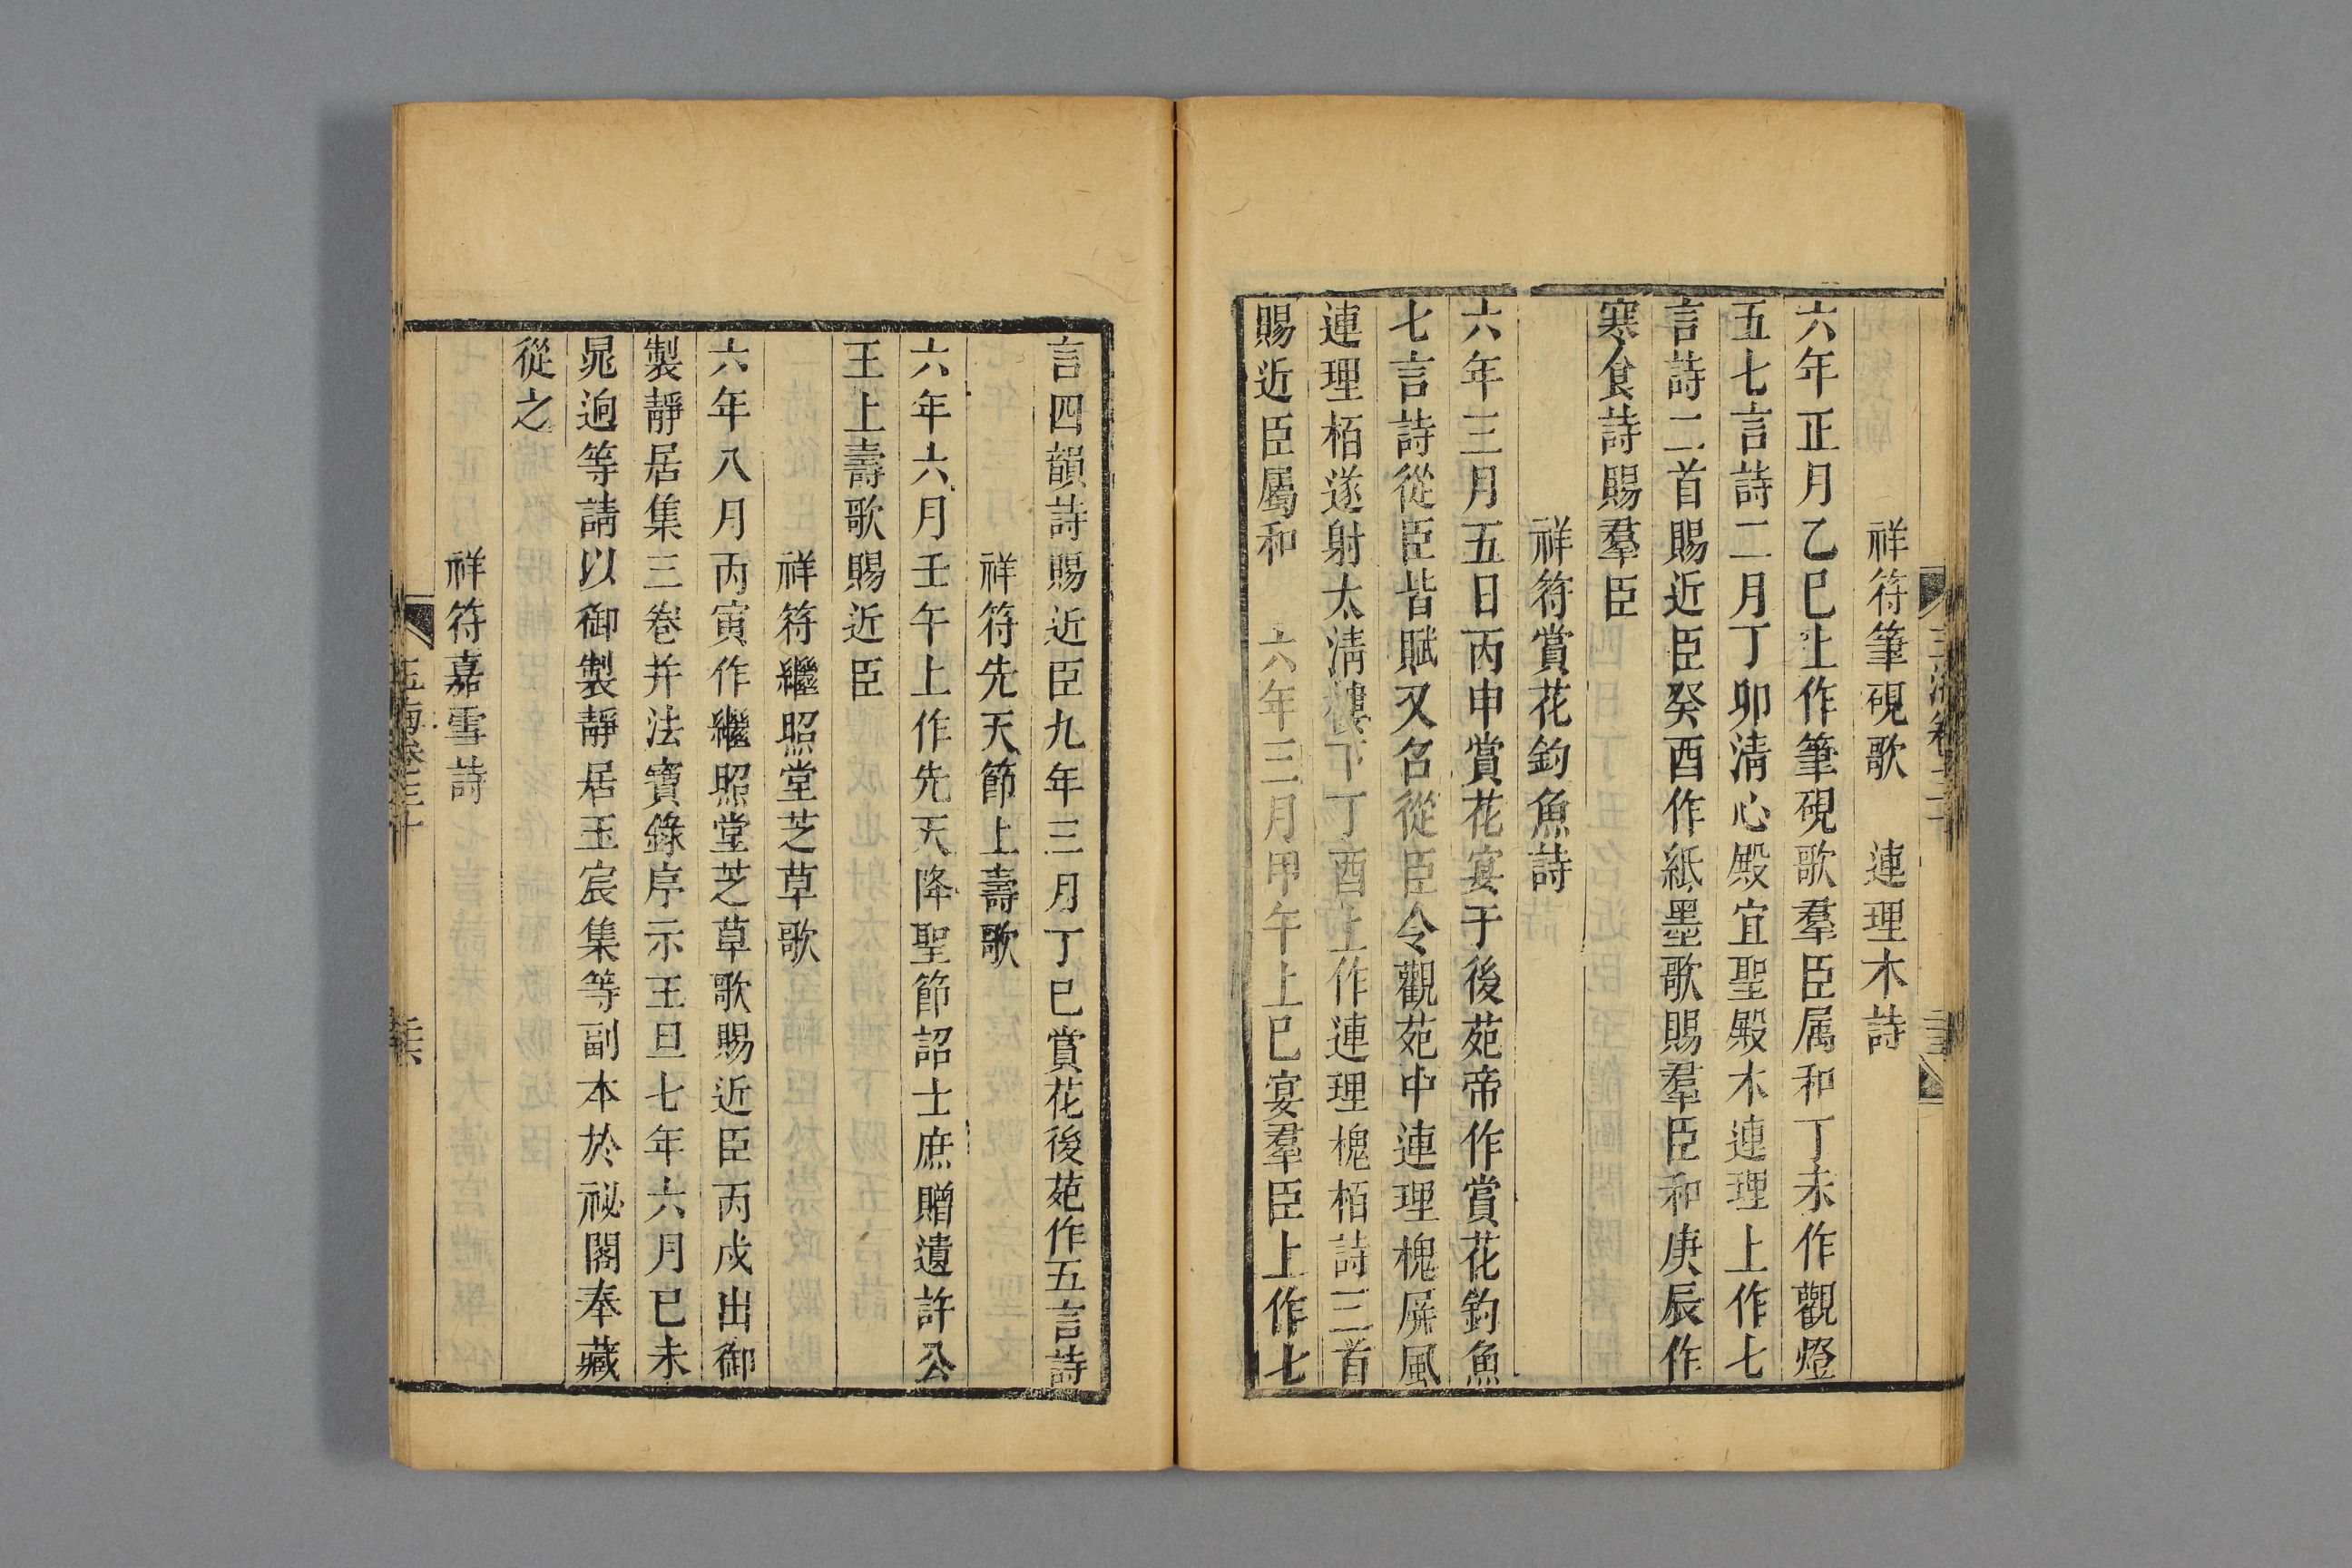 祥符筆硯歌　連理木詩
六年正月乙巳上作筆硯歌羣臣属和丁未作觀燈
五七言詩二月丁卯淸心殿宜聖殿木連理上作七
言詩二首賜近臣癸酉作紙墨歌賜羣臣和庚辰作
寒食詩賜羣臣
祥符賞花釣魚詩
六年三月五日丙申賞花宴于後苑帝作賞花釣魚
七言詩從臣皆賦又名從臣令觀苑中連理槐屏風
連理栢遂射太淸樓下丁酉上作連理槐栢詩三首
賜近臣屬和　六年三月甲午上巳宴羣臣上作七
言四韻詩賜近臣九年三月丁巳賞花後苑作五言詩
祥符先天節上壽歌
六年六月壬午上作先天降聖節詔士庶贈遺許公
王上壽歌賜近臣
祥符繼照堂芝草歌
六年八月丙寅作繼照堂芝草歌賜近臣丙戌出御
製靜居集三卷并法寶錄序示王旦七年六月已未
晁迥等請以御製靜居玉宸集等副本於祕閣奉藏
從之
祥符嘉雪詩
玉海卷三十